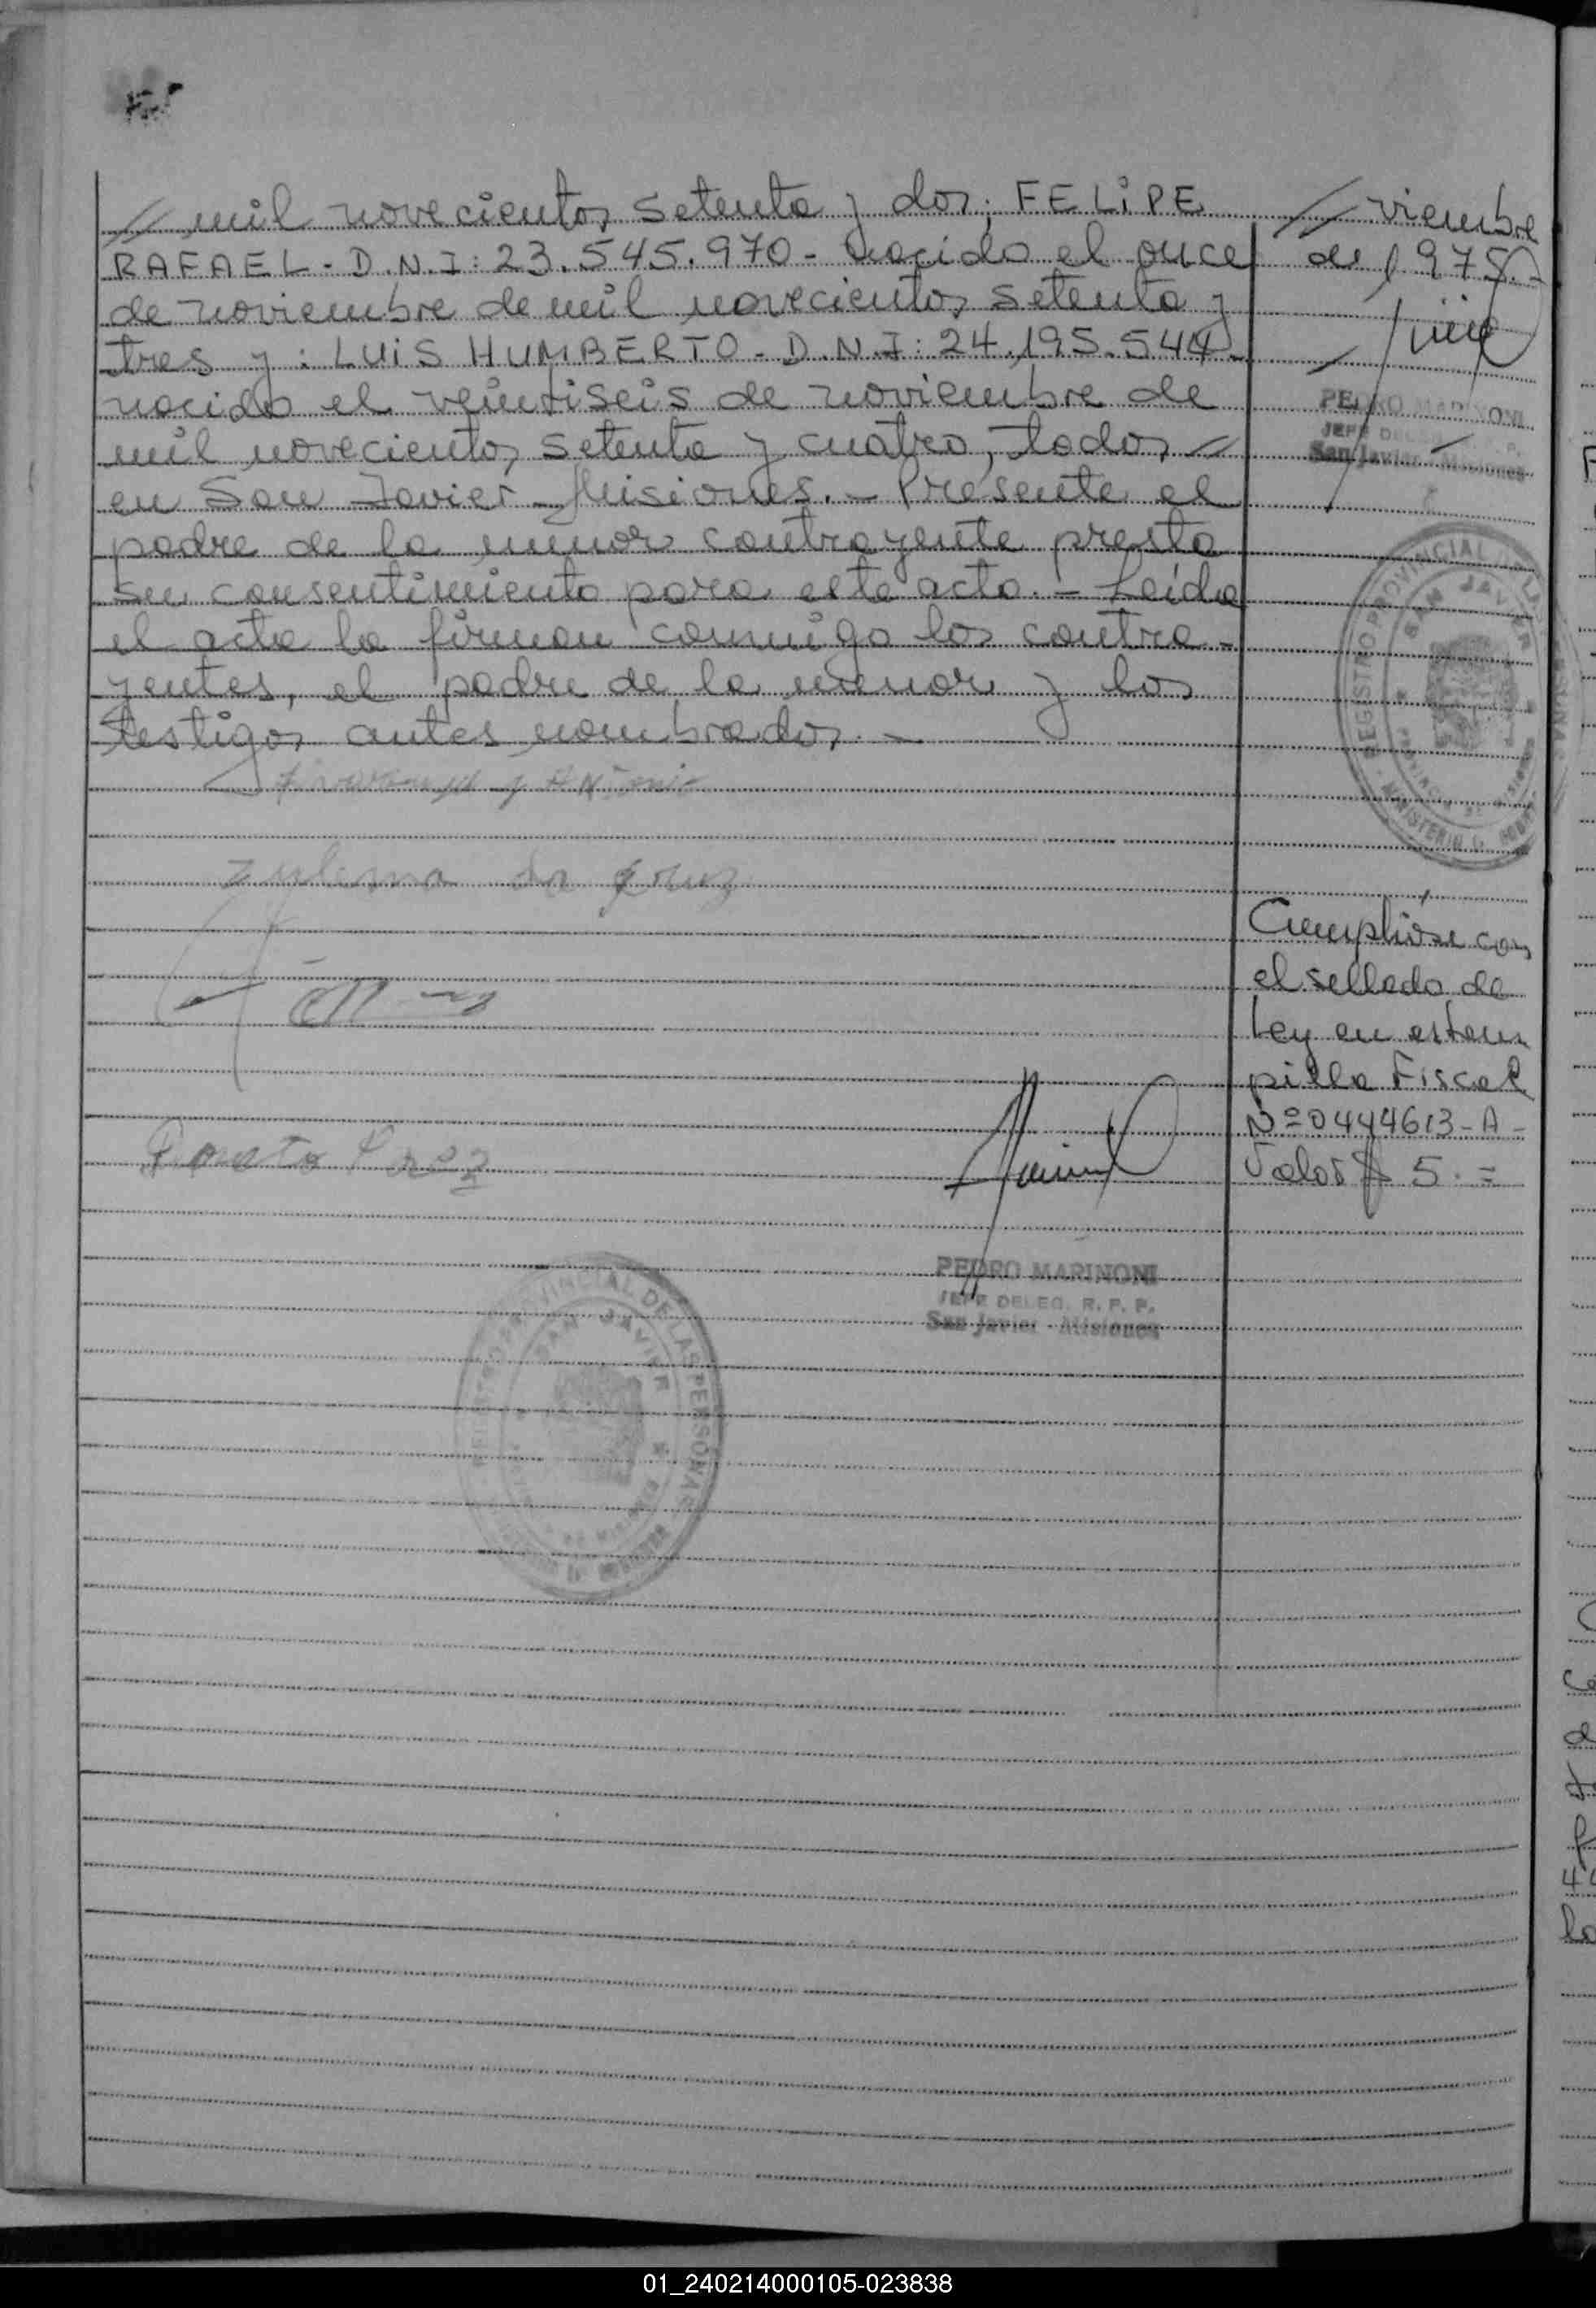 // mil novecientos setenta y dos; FELIPE
RAFAEL - D.N.I: 23.545.970 - nacido el once
de noviembre de mil novecientos setenta y
tres y: LUIS HUMBERTO - D.N.I: 24.195.544 -
nacido el veintiseis de noviembre de
mil novecientos setenta y cuatro, todos //
en San Javier - Misiones. - Presente el
padre de la menor contrayente presta
su consentimiento para este acto. - Leída
el acta la firman conmigo los contra-
yentes, el padre de la menor y los
testigos antes nombrados. -
Zulema da Cruz
PEDRO MARINONI
JEFE DELEG. R. P. P.
San Javier - Misiones
REGISTRO PROVINCIAL DE LAS PERSONAS
SAN JAVIER
// viembre
de 1975.-
PEDRO MARINONI
JEFE DELEG.
San Javier - Misiones
REGISTRO PROVINCIAL DE LAS PERSONAS
SAN JAVIER
PROVINCIA DE MISIONES
MINISTERIO
Cumplióse con
el sellado de
Ley en estam
pilla Fiscal
Nº 0444613 - A -
Valor $ 5. =
01_240214000105-023838